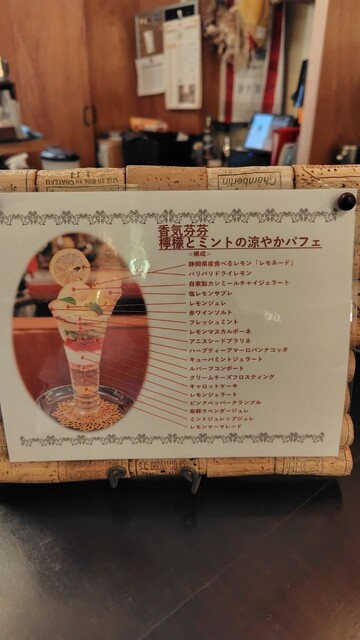 Chamberlin
香気芬芬
檸檬とミントの涼やかパフェ
<構成>
静岡県産食べるレモン「レモネード」
パリパリドライレモン
自家製カシミールチャイジェラート
塩レモンサブレ
レモンジュレ
赤ワインソルト
フレッシュミント
レモンマスカルポーネ
アニスシードプラリネ
ハーブティーアマーロパンナコッタ
キューバミントジェラート
ルバーブコンポート
クリームチーズフロスティング
キャロットケーキ
レモンジェラート
ピンクペッパークランブル
紫蘇ラベンダージュレ
ミントジュレップジュレ
レモンマーマレード